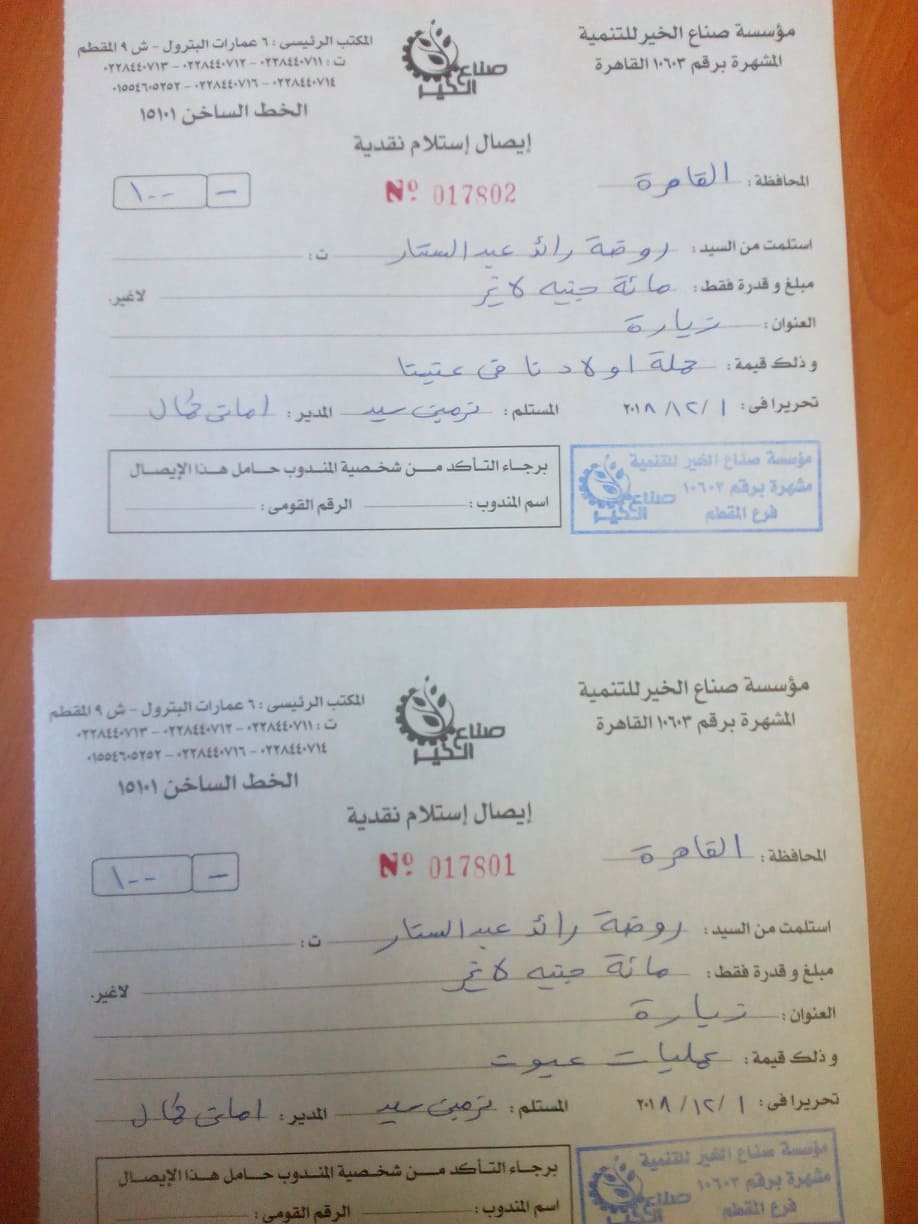 مؤسسة صناع الخير للتنمية
المشهرة برقم ١٠٦٠٣ القاهرة
صناع الخير
المكتب الرئيسى : ٦ عمارات البترول - ش ٩ المقطم
ت : ٠٢٢٨٤٤٠٧١١ - ٠٢٢٨٤٤٠٧١٢ - ٠٢٢٨٤٤٠٧١٣
٠٢٢٨٤٤٠٧١٤ - ٠٢٢٨٤٤٠٧١٦ - ٠١٥٥٤٦٠٥٢٥٢
الخط الساخن ١٥١٠١
إيصال إستلام نقدية
المحافظة : القاهرة
Nº 017802
- ١٠٠
استلمت من السيد : روضة رائد عبد الستار ت :
مبلغ و قدرة فقط : مائة جنيه لاغير لاغير.
العنوان : زيارة
و ذلك قيمة : حملة اولادنا فى عنينا
تحريرا فى : ١ / ١٢ / ٢٠١٨ المستلم : نرمين سيد المدير : امانى كمال
مؤسسة صناع الخير للتنمية
مشهرة برقم ١٠٦٠٣
فرع المقطم
صناع الخير
برجاء التأكد من شخصية المندوب حامل هذا الإيصال
اسم المندوب : الرقم القومى :
مؤسسة صناع الخير للتنمية
المشهرة برقم ١٠٦٠٣ القاهرة
صناع الخير
المكتب الرئيسى : ٦ عمارات البترول - ش ٩ المقطم
ت : ٠٢٢٨٤٤٠٧١١ - ٠٢٢٨٤٤٠٧١٢ - ٠٢٢٨٤٤٠٧١٣
٠٢٢٨٤٤٠٧١٤ - ٠٢٢٨٤٤٠٧١٦ - ٠١٥٥٤٦٠٥٢٥٢
الخط الساخن ١٥١٠١
إيصال إستلام نقدية
المحافظة : القاهرة
Nº 017801
- ١٠٠
استلمت من السيد : روضة رائد عبد الستار ت :
مبلغ و قدرة فقط : مائة جنيه لاغير لاغير.
العنوان : زيارة
و ذلك قيمة : عمليات عيون
تحريرا فى : ١ / ١٢ / ٢٠١٨ المستلم : نرمين سيد المدير : امانى كمال
مؤسسة صناع الخير للتنمية
مشهرة برقم ١٠٦٠٣
فرع المقطم
صناع الخير
برجاء التأكد من شخصية المندوب حامل هذا الإيصال
اسم المندوب : الرقم القومى :